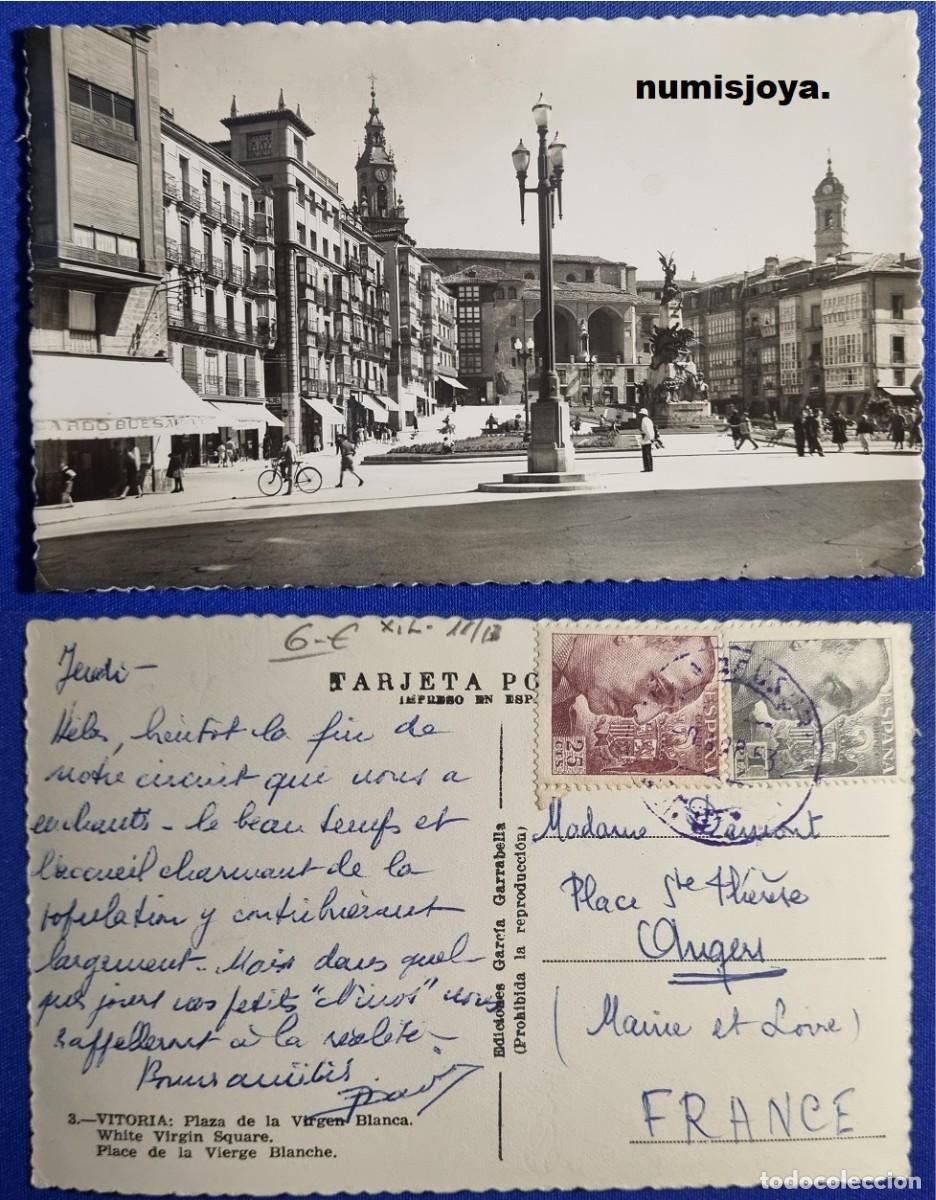 numisjoya.
ARDO BUESA
6-€
TARJETA PO
IMPRESO EN ESPA
25
CTS
ESPAÑA
ESPAÑA
Jeudi -
Hélas, bientôt la fin de
notre circuit qui nous a
enchantés - le beau temps et
l'accueil charmant de la
population y contribuèrent
largement. Mais dans quel-
ques jours nos petits "Ninos" nous
rappelleront à la réalité -
Bonnes amitiés
Ediciones García Garrabella
(Prohibida la reproducción)
Madame
Place Ste Thérèse
Angers
(Maine et Loire)
FRANCE
3.—VITORIA: Plaza de la Virgen Blanca.
White Virgin Square.
Place de la Vierge Blanche.
todocoleccion